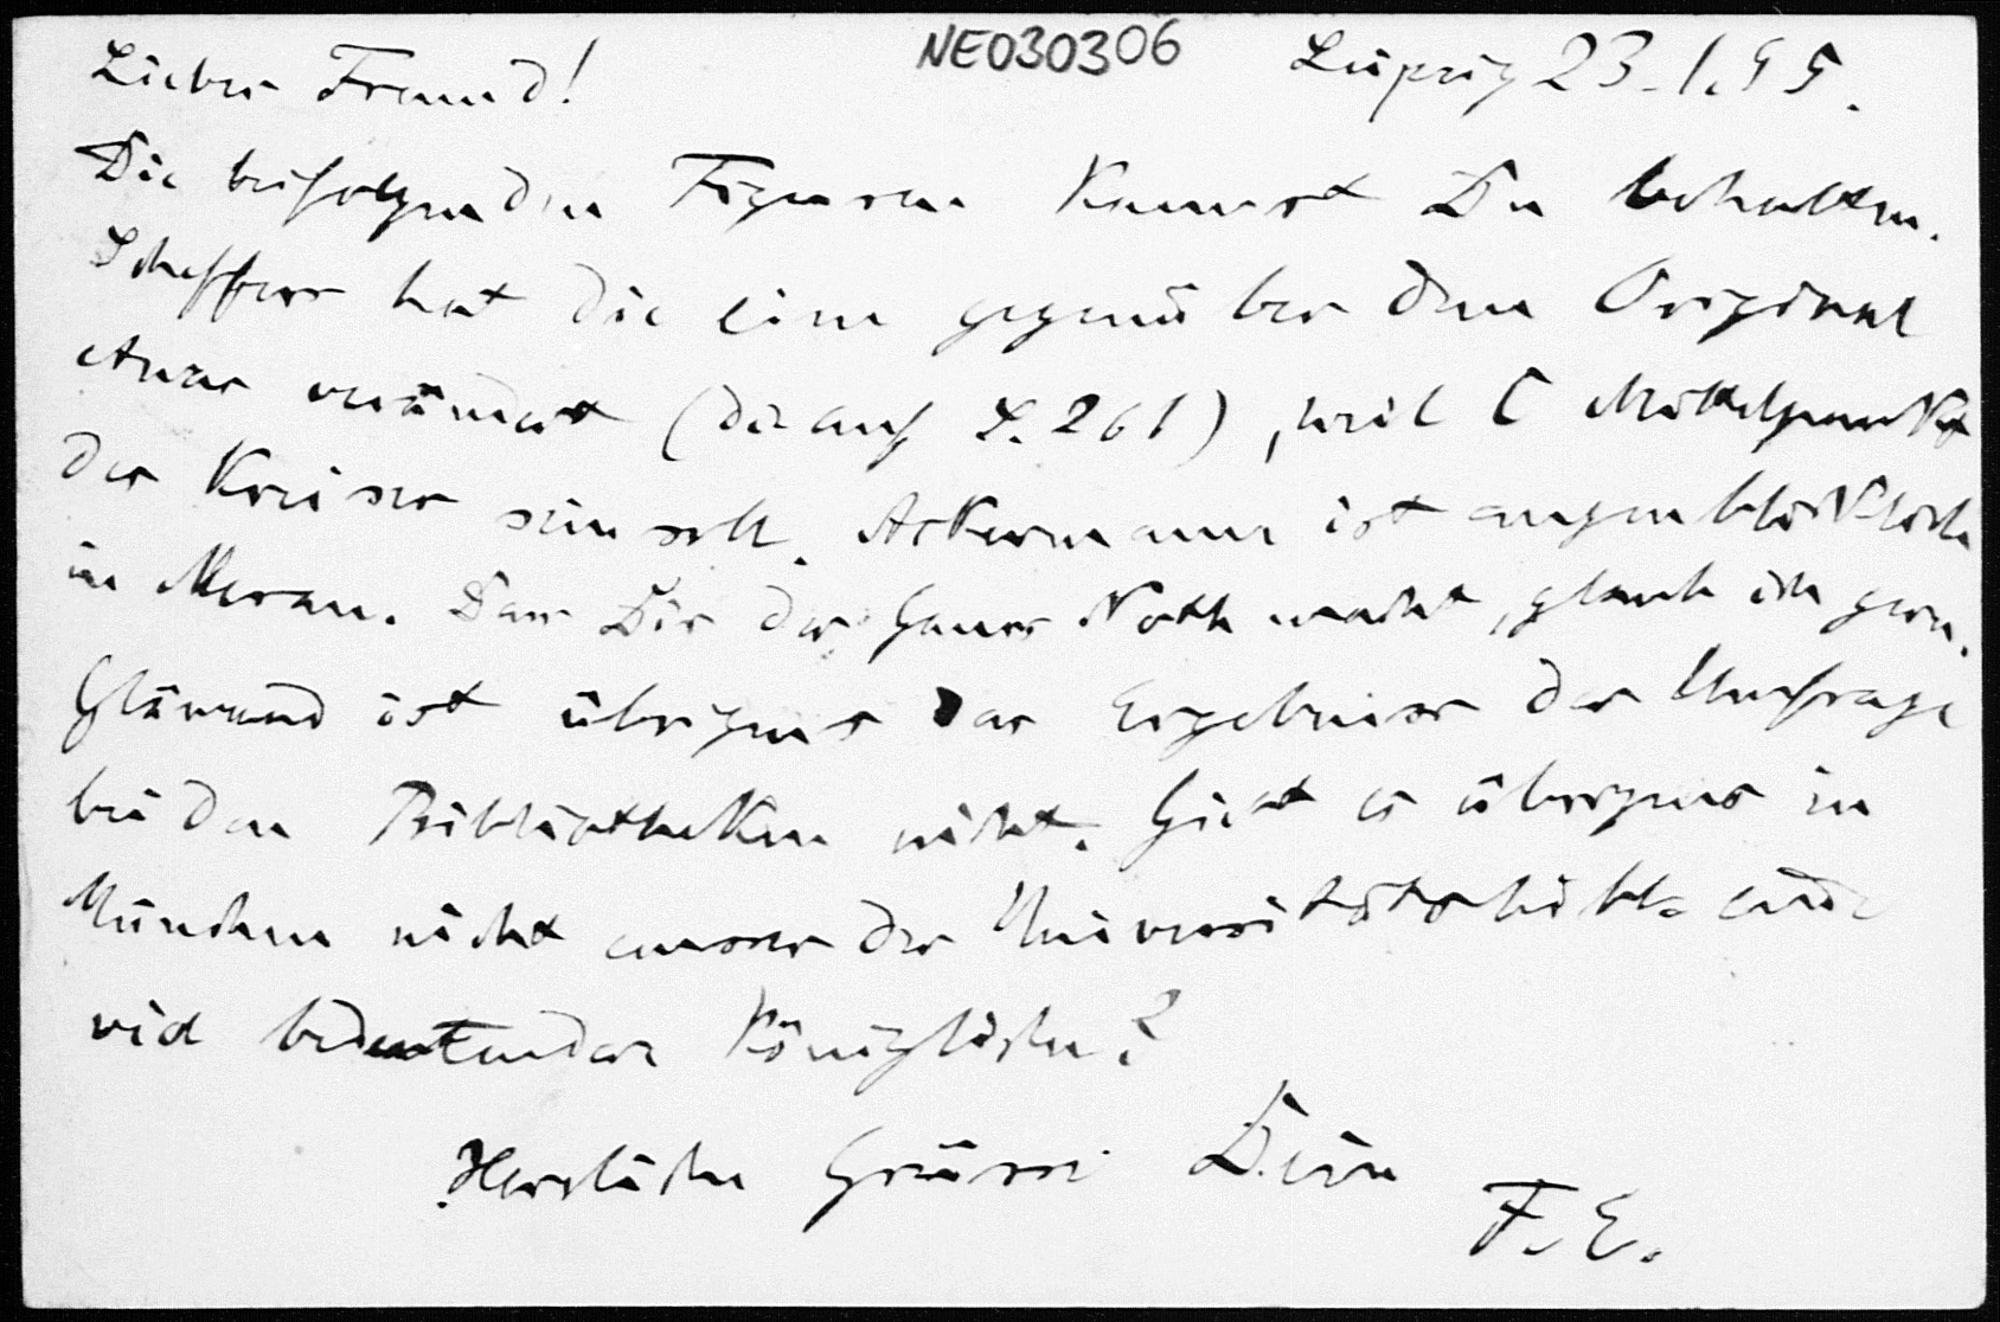 NE030306
Lieber Freund! Leipzig 23.1.95.
Die beifolgenden Figuren kannst Du behalten.
Scheffers hat die eine gegenüber dem Original
etwas verändert (die auf S. 261), weil C Mittelpunkt
des Kreises sein soll. Ackermann ist augenblicklich
in Meran. Dass Dir der Gauss Noth macht, glaub ich gern.
Glänzend ist übrigens das Ergebniss der Umfrage
bei den Bibliotheken nicht. Giebt es übrigens in
München nicht ausser der Universitätsbibl. eine
viel bedeutendere Königliche?
Herzliche Grüsse Dein
F. E.